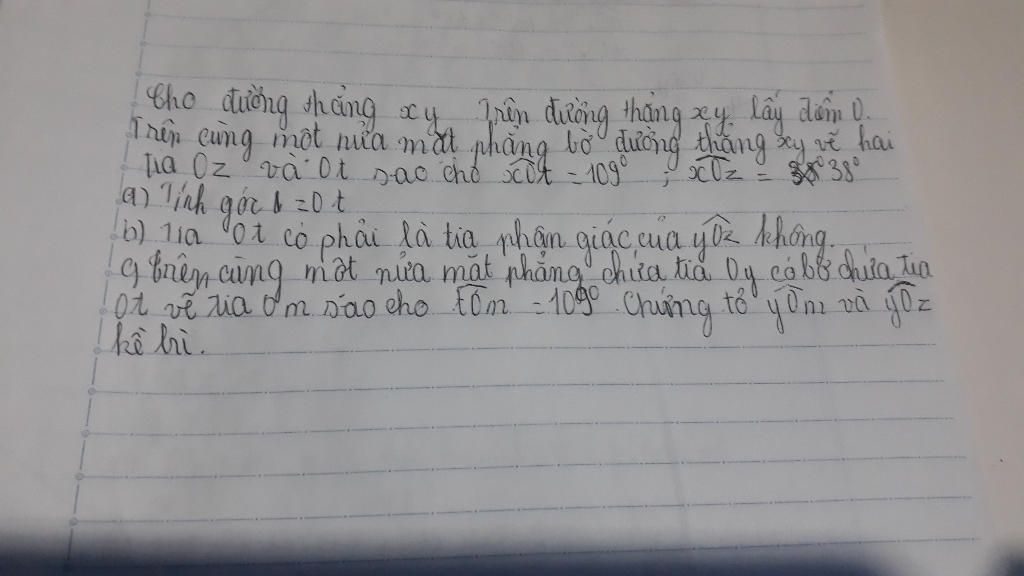 Cho đường thẳng xy Trên đường thẳng xy lấy điểm O.
Trên cùng một nửa mặt phẳng bờ đường thẳng xy vẽ hai
tia Oz và Ot sao cho xOt = 109° ; xOz = 38°
a) Tính góc = Ot
b) Tia Ot có phải là tia phân giác của yOz không.
c) trên cùng một nửa mặt phẳng chứa tia Oy có bờ chứa tia
Ot vẽ tia Om sao cho tOm = 109° . Chứng tỏ yOm và yOz
kề bì.